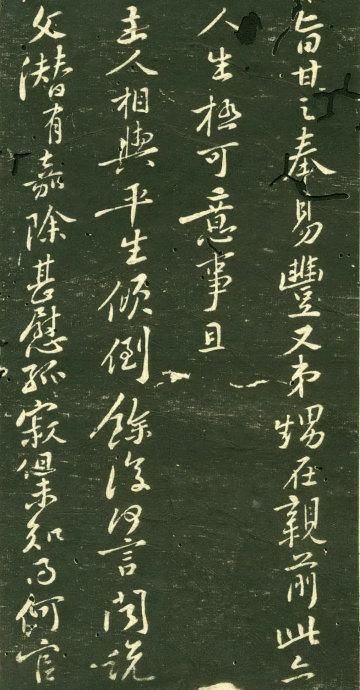 旨甘之奉易豐又弟甥在親前此亦
人生極可意事且
主人相與平生傾倒餘復何言聞說
父潛有嘉除甚慰孤寂但未知得何官